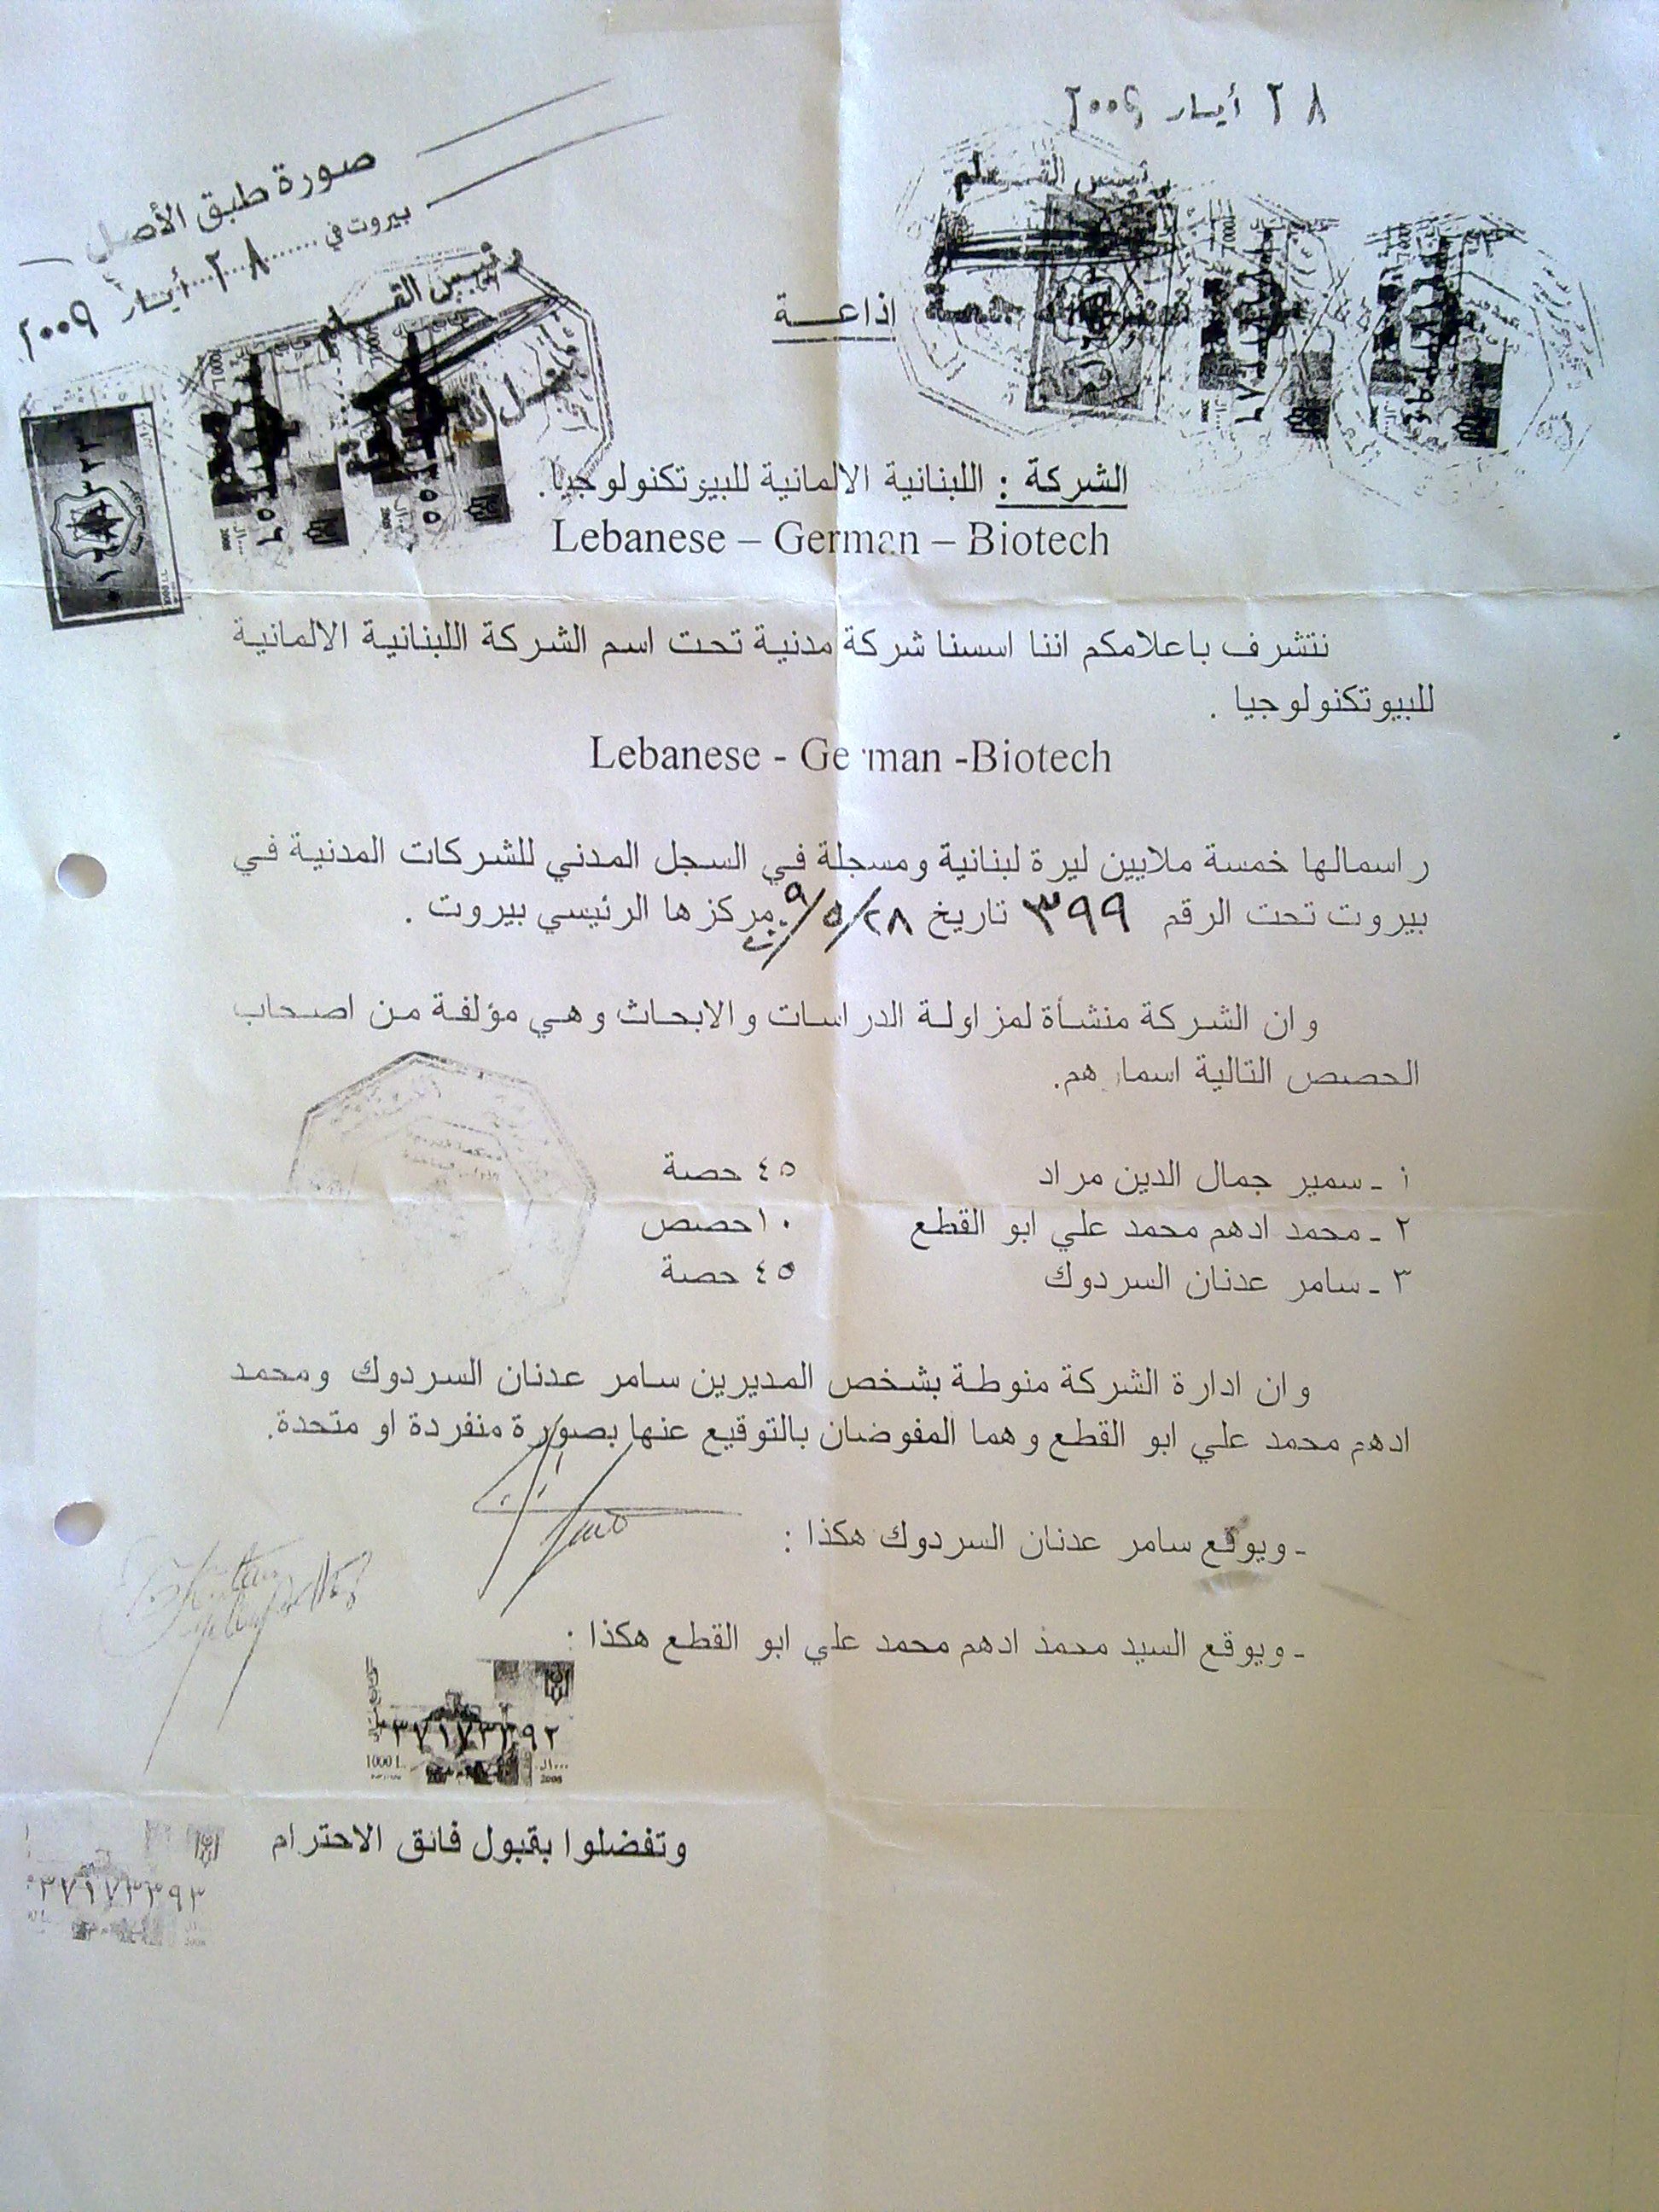 ٢٨ أيار ٢٠٠٩
صورة طبق الأصل
بيروت في ٢٨ أيار ٢٠٠٩
رئيس القلم
رئيس القلم
اذاعة
الشركة : اللبنانية الالمانية للبيوتكنولوجيا.
Lebanese – German – Biotech
نتشرف باعلامكم اننا اسسنا شركة مدنية تحت اسم الشركة اللبنانية الالمانية
للبيوتكنولوجيا .
Lebanese - German -Biotech
راسمالها خمسة ملايين ليرة لبنانية ومسجلة في السجل المدني للشركات المدنية في
بيروت تحت الرقم ٣٩٩ تاريخ ٢٨/٥/٢٠٠٩ مركزها الرئيسي بيروت .
وان الشركة منشأة لمزاولة الدراسات والابحاث وهي مؤلفة من اصحاب
الحصص التالية اسماؤهم.
١ - سمير جمال الدين مراد ٤٥ حصة
٢ - محمد ادهم محمد علي ابو القطع ١٠ حصص
٣ - سامر عدنان السردوك ٤٥ حصة
وان ادارة الشركة منوطة بشخص المديرين سامر عدنان السردوك ومحمد
ادهم محمد علي ابو القطع وهما المفوضان بالتوقيع عنها بصورة منفردة او متحدة.
- ويوقع سامر عدنان السردوك هكذا :
- ويوقع السيد محمد ادهم محمد علي ابو القطع هكذا :
٣٧١٧٣٣٩٢
1000 L.
2008
وتفضلوا بقبول فائق الاحترام
٣٧١٧٣٣٩٣